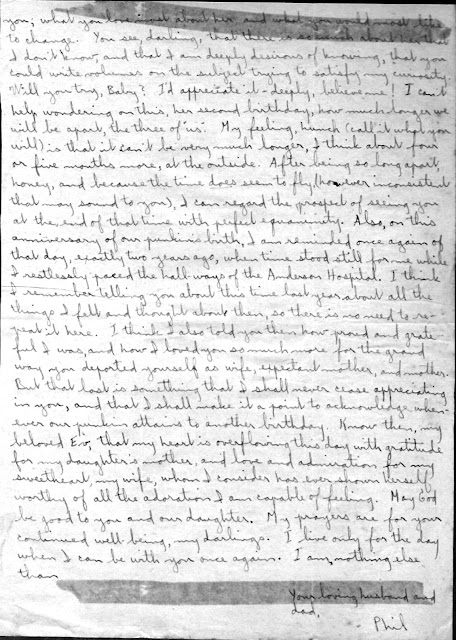 you; what you love most about her and what you would most like
to change. You see, darling, that there is so much about her that
I don't know, and that I am deeply desirous of knowing, that you
could write volumes on the subject trying to satisfy my curiosity.
Will you try, Baby? I'd appreciate it - deeply, believe me! I can't
help wondering on this, her second birthday, how much longer we
will be apart, the three of us. My feeling, hunch (call it what you
will) is that it can't be very much longer, I think about four
or five months more, at the outside. After being so long apart,
honey, and because the time does seem to fly, (however inconsistent
that may sound to you), I can regard the prospect of seeing you
at the end of that time with perfect equanimity. Also, on this
anniversary of our punkin's birth, I am reminded once again of
that day, exactly two years ago, when time stood still for me while
I restlessly paced the hallways of the Anderson Hospital. I think
I remember telling you about this time last year about all the
things I felt and thought about then, so there is no need to re-
peat it here. I think I also told you then how proud and grate
ful I was, and how I loved you so much more for the grand
way you deported yourself as wife, expectant mother, and mother.
But that last is something that I shall never cease appreciating
in you, and that I shall make it a point to acknowledge when-
ever our punkin attains to another birthday. Know then, my
beloved Ev, that my heart is overflowing this day with gratitude
for my daughter's mother, and love and admiration for my
sweetheart, my wife, whom I consider has ever shown herself
worthy of all the adoration I am capable of feeling. May God
be good to you and our daughter. My prayers are for your
continued well-being, my darlings. I live only for the day
when I can be with you once again. I am, nothing else
than
Your loving husband and
dad,
- Phil